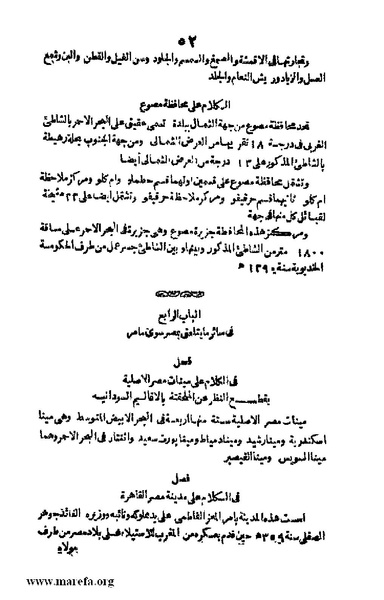 ٥٢
وتجارتها فى الاقمشة والصمغ والسمسم والجلود وسن الفيل والقطن والبن وشمع
العسل والزباد وريش النعام والجلد
الكلام على محافظة مصوع
تحد محافظة مصوع من جهة الشمال ببلدة تسمى عقيق على البحر الاحمر بالشاطئ
الغربى فى درجة ١٨ تقريبا من العرض الشمالى ومن جهة الجنوب بجهة رهيطة
بالشاطئ المذكور على ١٣ درجة من العرض الشمالى أيضا
وتشتمل محافظة مصوع على قسمين اولهما قسم حطملو وام كلو ومركز ملاحظة
ام كلو ثانيهما قسم حرقيقو ومركز ملاحظة حرقيقو وتشتمل ايضا على ٢٣
لقبائل كل منها فى جهة
ومركز هذه المحافظة جزيرة مصوع وهى جزيرة فى البحر الاحمر على مسافة
١٨٠٠ متر من الشاطئ المذكور وبينها وبين الشاطئ جسر عمل من طرف الحكومة
الخديوية سنة ١٢٩٠ هـ
الباب الرابع
فى سائر ما يتعلق بمصر سوى ما مر
فصل
فى الكلام على مينات مصر الاصلية
بقطع النظر عن الملحقة بالاقاليم السودانيه
مينات مصر الاصلية ستة منها اربعة فى البحر الابيض المتوسط وهى مينا
اسكندرية ومينا رشيد ومينا دمياط ومينا بورت سعيد واثنتان فى البحر الاحمر وهما
مينا السويس ومينا القصير
فصل
فى الكلام على مدينة مصر القاهرة
اسست هذه المدينة بامر المعز الفاطمى على يد مملوكه ونائبه ووزيره القائد جوهر
الصقلى سنة ٣٥٩ هـ حين قدم بعسكره من المغرب للاستيلاء على بلاد مصر من طرف
مولاه
www.marefa.org